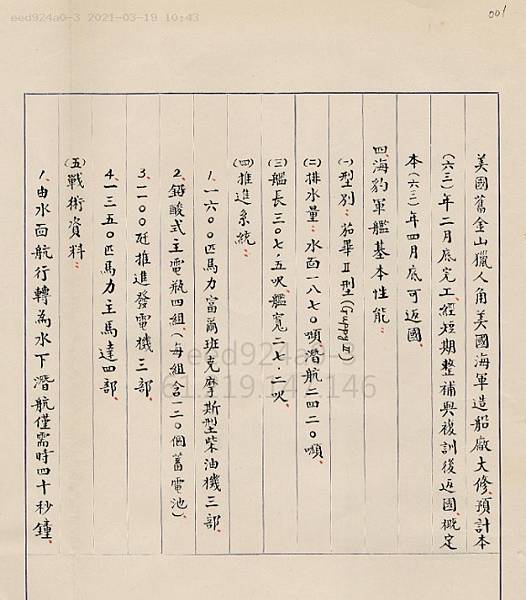 eed924a0-3 2021-03-19 10:43
001
美國舊金山獵人角美國海軍造船廠大修，預計本
（六三）年二月底完工，經短期整補與複訓後返國，概定
本（六三）年四月底可返國。
四、海豹軍艦基本性能：
㈠型別：茄畢Ⅱ型（Guppy Ⅱ）
㈡排水量：水面一八七〇噸，潛航二四二〇噸。
㈢艦長三〇七．五呎，艦寬二七．二呎。
㈣推進系統：
1.一六〇〇匹馬力富爾班克摩斯型柴油機三部。
2.鉛酸式主電瓶四組（每組含一二〇個蓄電池）。
3.一一〇〇瓩推進發電機三部。
4.一三五〇匹馬力主馬達四部。
㈤戰術資料：
1.由水面航行轉為水下潛航僅需時四十秒鐘。
eed924a0-3
61.219.142.146